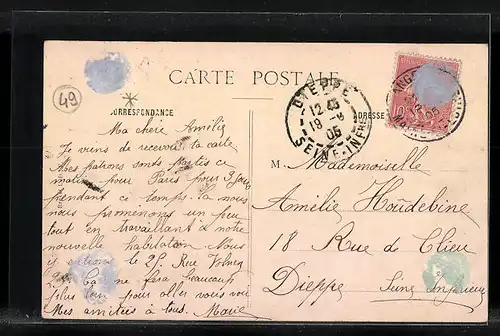 49
CARTE POSTALE
CORRESPONDANCE
ADRESSE
DIEPPE
12 45
18 -8
05
SEINE INFRE
Ma chère Amélie
Je viens de recevoir ta carte
Mes patrons sont partis ce
matin pour Paris pour 3 jours
pendant ce temps la nous
nous promenons un peu
tout en travaillant à notre
nouvelle habitation Nous
y 25 Rue
Ça me fera beaucoup
plus loin pour aller vous voir
Mes amitiés à tous. Marie
M. Mademoiselle
Amélie Houdebine
18 Rue de Clieu
Dieppe Seine Inférieure